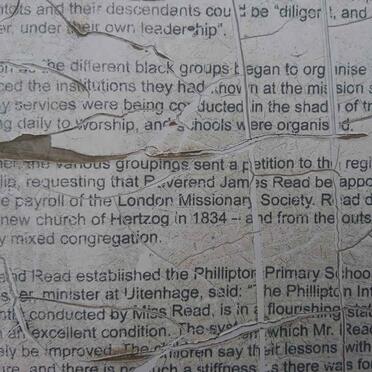 and their descendants could be "diligent, and
under their own leadership".
the different black groups began to organise
the institutions they had known at the mission
services were being conducted in the shade of
daily to worship, and schools were organised.
the various groupings sent a petition to the
requesting that Reverend James Read be
payroll of the London Missionary Society. Read
new church of Hertzog in 1834 – and from the
mixed congregation.
and Read established the Phillipton Primary School
minister at Uitenhage, said: "The Phillipton
conducted by Miss Read, is in a flourishing
an excellent condition. The system which Mr. Read
be improved. The children say their lessons with
and there is such a stiffness as there was